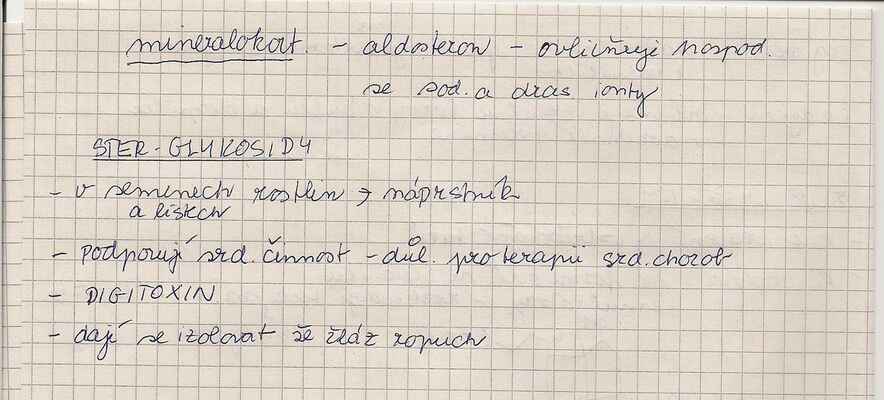 mineralokort. - aldosteron - ovlivňují hospod.
se sod. a dras ionty
STER - GLYKOSIDY
- v semenech rostlin → náprstník
a lístcích
- podporují srd. činnost - důl. pro terapii srd. chorob
- DIGITOXIN
- dají se izolovat ze žláz ropuch